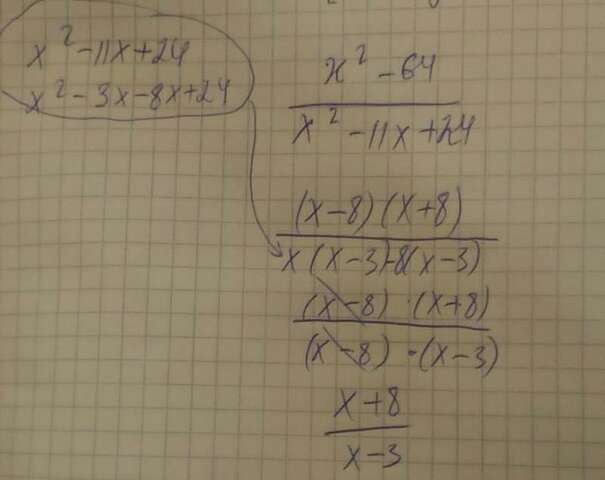 x² - 11x + 24
x² - 3x - 8x + 24
x² - 64
x² - 11x + 24
(x - 8) (x + 8)
x (x - 3) - 8(x - 3)
(x - 8) · (x + 8)
(x - 8) · (x - 3)
x + 8
x - 3